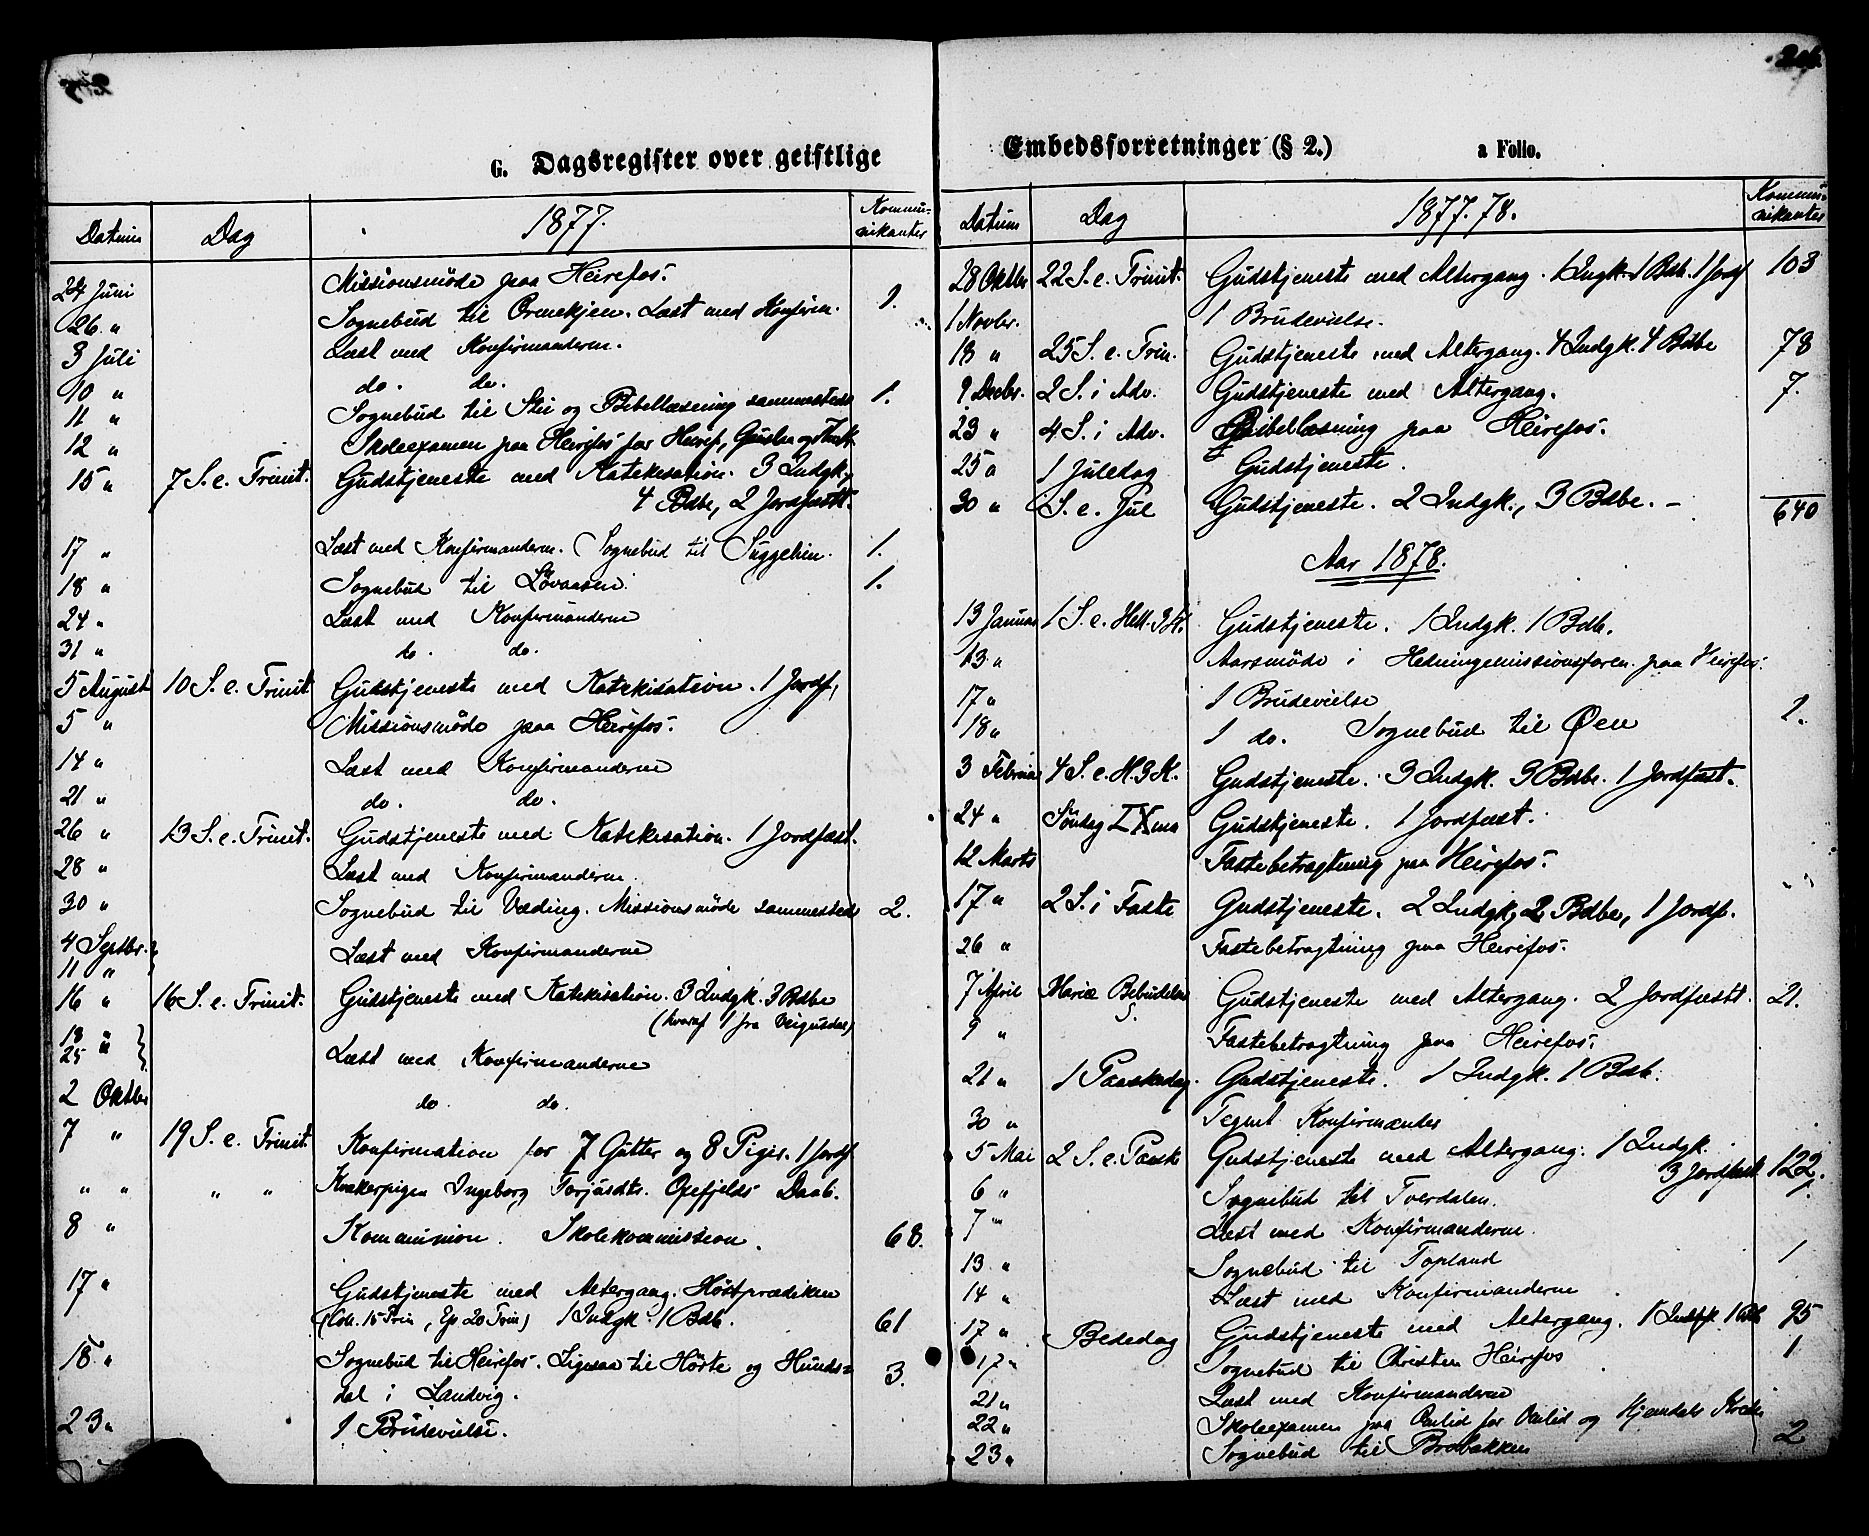 206.
G. Dagsregister over geistlige
Datum Dag 1877. Kommunikanter
24 Juni Missionsmöde paa Heirefos.
26 " Sognebud til Ormekjen. Læst med Konfirm. 1.
3 Juli Læst med Konfirmanderne.
10 " do. do.
11 " Sognebud til Stii og Bibellæsning sammesteds 1.
12 " Skoleexamen paa Heirefos for Heiref, og
15 " 7 S. e. Trinit. Gudstjeneste med Katekisation. 3 Indgk,
4 Bdbe, 2 Jordfæstt.
17 " Læst med Konfirmanderne. Sognebud til 1.
18 " Sognebud til Lövaasen. 1.
24 " Læst med Konfirmanderne
31 " do. do.
5 August 10 S. e. Trinit. Gudstjeneste med Katekisation. 1 Jordf,
5 " Missionsmöde paa Heirefos.
14 " Læst med Konfirmanderne
21 " do. do.
26 " 13 S. e. Trinit. Gudstjeneste med Katekisation. 1 Jordfæst.
28 " Læst med Konfirmanderne.
30 " Sognebud til Væding. Missionsmöde sammesteds 2.
4 Septbr.
11 " Læst med Konfirmanderne
16 " 16 S. e. Trinit. Gudstjeneste med Katekisation. 3 Indgk. 3 Bdbe
(hvoraf 1 fra Vegusdal)
18 "
25 " Læst med Konfirmanderne
2 Oktbr do do.
7 " 19 S. e. Trinit. Konfirmation for 7 Gutter og 8 Piger. 1 Jordf
" " " " Kvækerpigen Ingeborg Torjusdtr. Opefjelds Daab.
8 " Kommunion. Skolekommission. 68.
17 " Gudstjeneste med Altergang. Höstprædiken
(Coll. 15 Trin, Ep 20 Trin) 1 Indgk. 1 Bdb. 61
18 " Sognebud til Heirefos. Ligesaa til Hörte og Hunds-
dal i Landvig. 3.
23 " 1 Brudevielse.
Embedsforretninger (§ 2.) a Folio.
Datum Dag 1877. 78. Kommunikanter
28 Oktbr 22 S. e. Trinit. Gudstjeneste med Altergang. 1 Indgk. 1 Bdb. 1 Jordf 103
1 Novbr. 1 Brudevielse.
18 " 25 S. e. Trin. Gudstjeneste med Altergang. 4 Indgk. 4 Bdbe 78
9 Decbr. 2 S. i Adv. Gudstjeneste med Altergang. 7.
23 " 4 S. i Adv. Bibellæsning paa Heirefos.
25 " 1 Juledag Gudstjeneste.
30 " S. e. Jul Gudstjeneste. 2 Indgk., 3 Bdbe. – 640
Aar 1878.
13 Januar 1 S. e. Hell. 3 K. Gudstjeneste. 1 Indgk. 1 Bdb.
13 " Aarsmöde i Hedningemissionsforen. paa Heirefos.
17 " 1 Brudevielse
18 " 1 do. Sognebud til Öen 1.
3 Februar 4 S. e. H. 3 K. Gudstjeneste. 3 Indgk. 3 Bdbe. 1 Jordfæst.
24 " Söndag LXma Gudstjeneste. 1 Jordfæst.
12 Marts Fastebetragtning paa Heirefos.
17 " 2 S. i Faste Gudstjeneste. 2 Indgk, 2 Bdbe, 1 Jordf.
26 " Fastebetragtning paa Heirefos.
7 April Mariæ Bebudelses Gudstjeneste med Altergang. 2 Jordfæstt. 21.
9 " Fastebetragtning paa Heirefos.
21 " 1 Paaskedag. Gudstjeneste. 1 Indgk. 1 Bdb.
30 " Tegnet Konfirmander
5 Mai 2 S. e. Paask Gudstjeneste med Altergang. 1 Indgk.
3 Jordfæst 122.
6 " Sognebud til Tverdalen. 1.
7 " Læst med Konfirmanderne.
13 " Sognebud til Topland 1
14 " Læst med Konfirmanderne.
17 " Bededag Gudstjeneste med Altergang. 1 Indgk 1 Bdb 95
17 " Sognebud til Christen Heirefos 1
21 " Læst med Konfirmanderne
22 " Skoleexamen paa Ovelid for Ovelid og Kjendals Kreds
23 " Sognebud til Brobakken 2